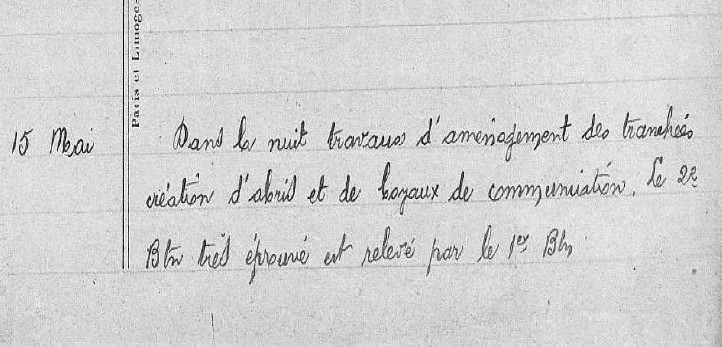 Paris et Limoges
15 Mai
Dans la nuit travaux d'aménagement des tranchées
création d'abris et de boyaux de communication. Le 2e
Btn très éprouvé est relevé par le 1er Btn